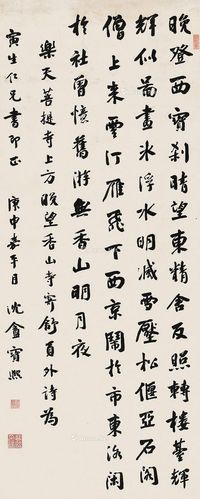 晚登西寶刹晴望東精舍反照轉樓臺輝
輝似圖畫冰浮水明滅雪壓松偃亞石閣
僧上來雲汀雁飛下西京鬧於市東洛閑
於社曾憶舊游無香山明月夜
樂天菩提寺上方晚望香山寺寄舒員外詩為
寅生仁兄書即正 庚申嘉平月 沈盦寶熙